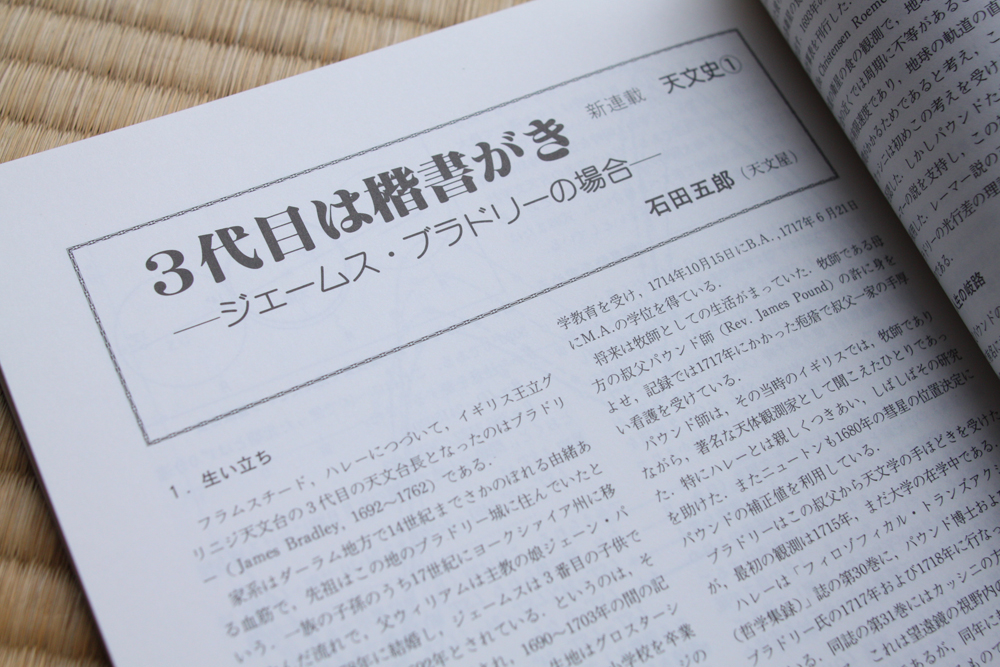 新連載 天文史①
3代目は楷書がき
—ジェームス・ブラドリーの場合—
石田五郎（天文屋）
1. 生い立ち
フラムスチード，ハレーにつづいて，イギリス王立グ
リニジ天文台の3代目の天文台長となったのはブラドリ
ー（James Bradley, 1692～1762）である．
家系はダーラム地方で14世紀までさかのぼれる由緒あ
る血筋で，先祖はこの地のブラドリー城に住んでいたと
いう．一族の子孫のうち17世紀にヨークシァイア州に移
んだ流れで，父ウィリアムは主教の娘ジェーン・パ
年に結婚し，ジェームスは3番目の子供で
年とされている．というのは，そ
され，1690～1703年の間の記
生地はグロスター
小学校を卒業
学教育を受け，1714年10月15日にB.A.，1717年6月21日
にM.A.の学位を得ている．
将来は牧師としての生活がまっていた．牧師である母
方の叔父パウンド師（Rev. James Pound）の許に身を
よせ，記録では1717年にかかった疱瘡で叔父一家の手厚
い看護を受けている．
パウンド師は，その当時のイギリスでは，牧師であり
ながら，著名な天体観測家として聞こえたひとりであっ
た．特にハレーとは親しくつきあい，しばしばその研究
を助けた．またニュートンも1680年の彗星の位置決定に
パウンドの補正値を利用している．
ブラドリーはこの叔父から天文学の手ほどきを受けた
が，最初の観測は1715年，まだ大学の在学中である．
ハレーは「フィロゾフィカル・トランズアク
（哲学集録）」誌の第30巻に，パウンド博士およ
ブラドリー氏の1717年および1718年に行な
同誌の第31巻にはカッシニの
これは望遠鏡の視野内
るが，同年に
Christensen Roem
星の食の観測で，地
近くでは周期に不等がある
速度であり，地球の軌道の直
かかるためであると考え，こ
ニは初めこの考えを受け
した．しかしパウンドた
ーの説を支持し，この
した．レーマー説の
リーの光行差の理
ある．
の岐路